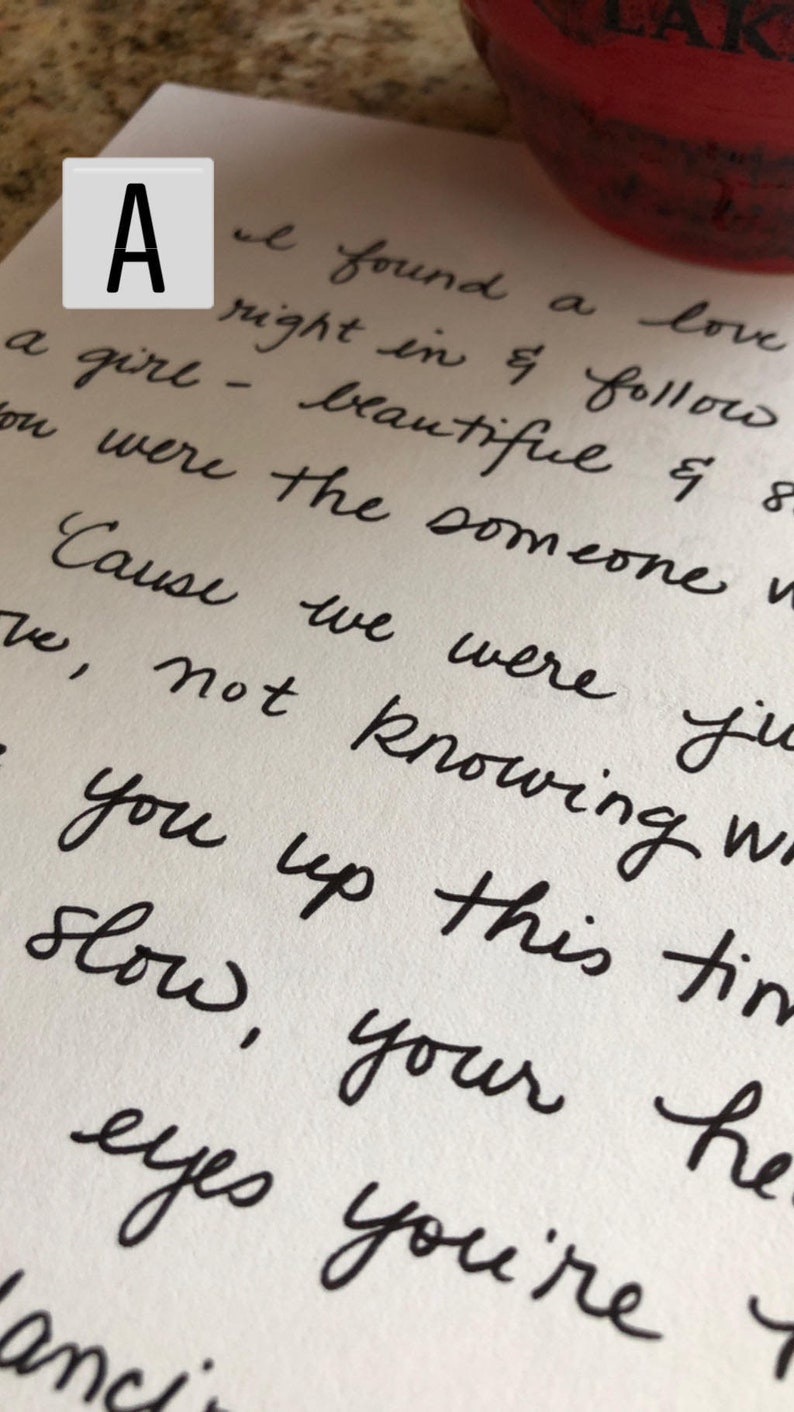 LAK
A
I found a love
right in & follow
a girl - beautiful & s
you were the someone w
'Cause we were ju
ove, not knowing wh
you up this tim
slow, your he
eyes you're
dancin